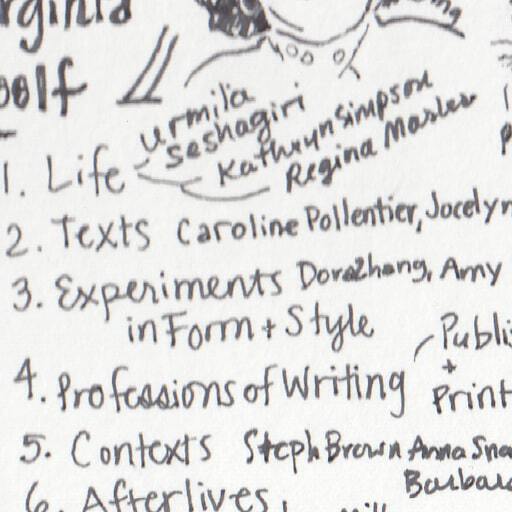 urmila
seshagiri
1. Life
Kathryn Simpson
Regina Marler
2. Texts Caroline Pollentier, Jocelyn
3. Experiments Dora Zhang, Amy
in Form + Style
4. Professions of Writing
+
Print
5. Contexts Steph Brown Anna
6. Afterlives